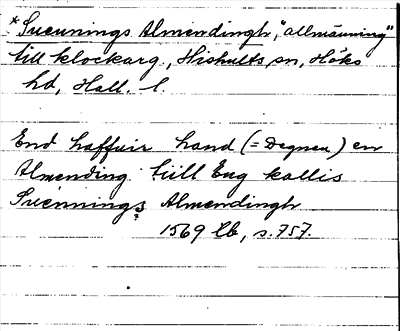 * Suennings Almendingh, "allmänning"
till klockarg., Hishults sn, Höks
hd, Hall. l.
End haffuir hand (= Degnen) en
Almending till Eng kallis
Suennings Almendingh
1569 lb, s. 757.